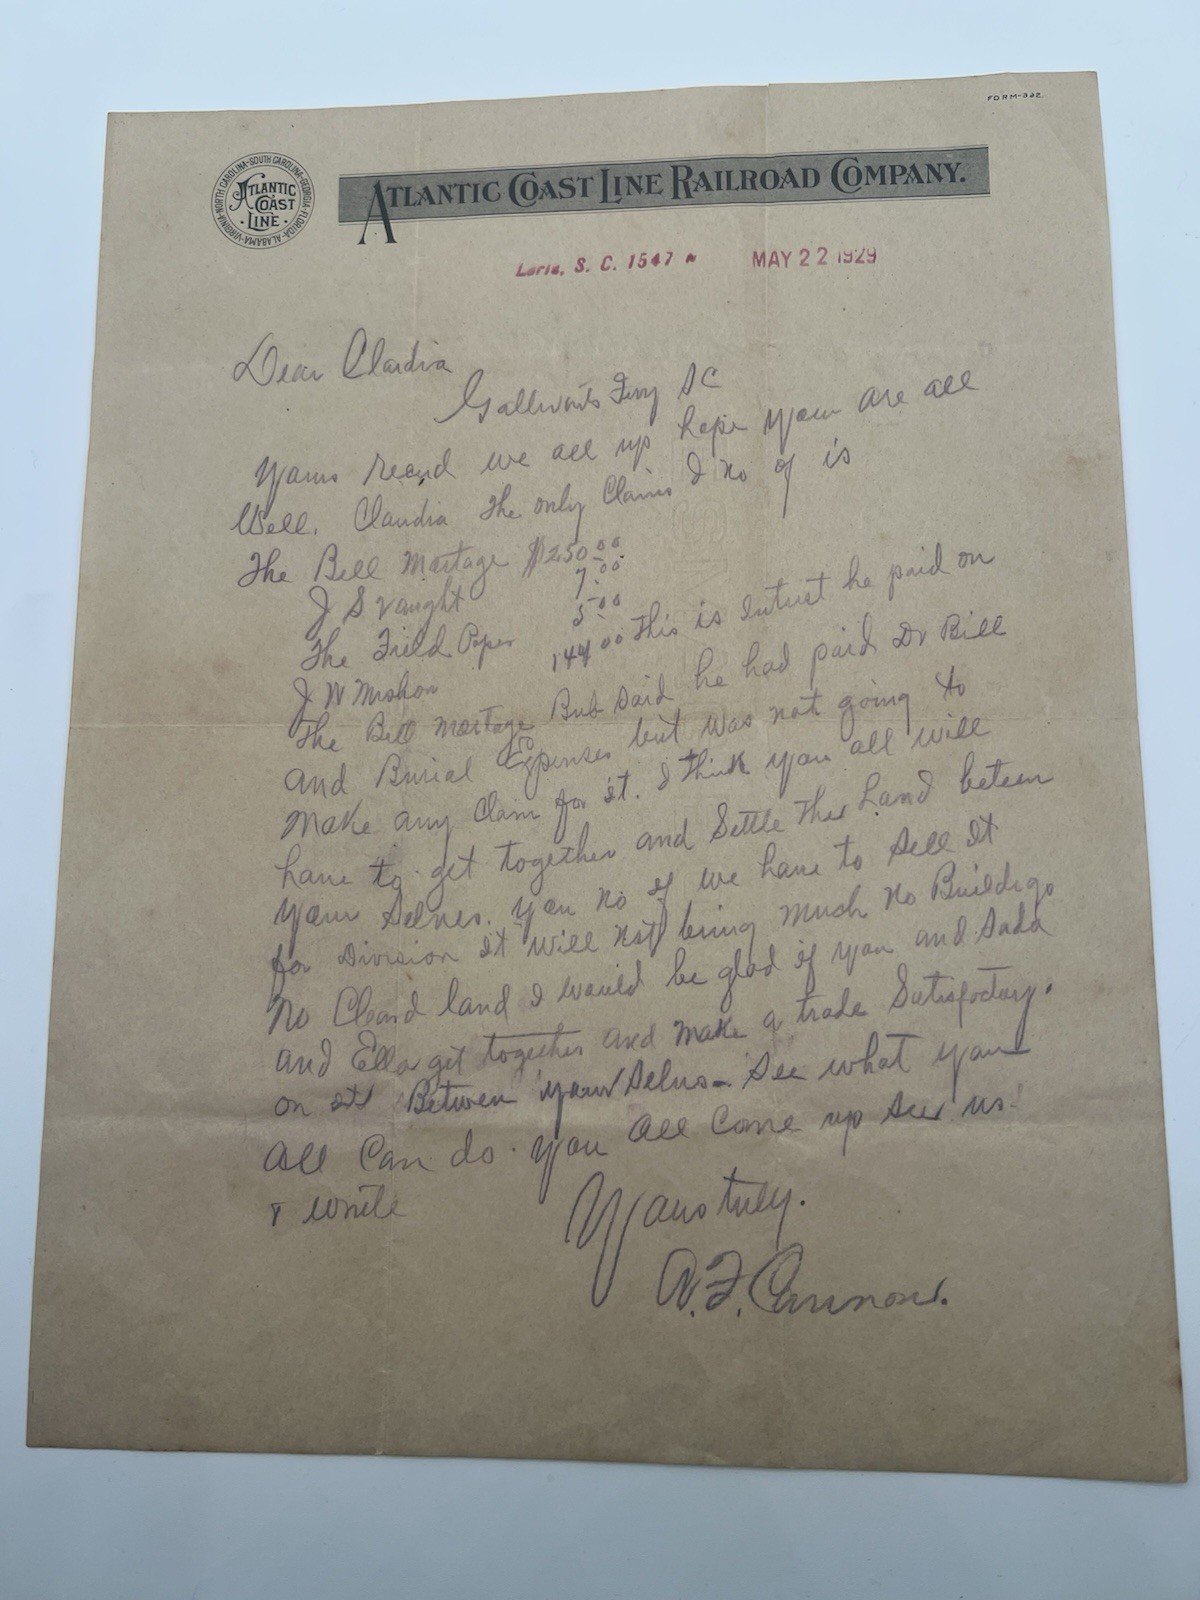 FORM-332.
VIRGINIA-NORTH CAROLINA-SOUTH CAROLINA-GEORGIA-FLORIDA-ALABAMA-
ATLANTIC
COAST
LINE
ATLANTIC COAST LINE RAILROAD COMPANY.
Loris, S. C. 1547 MAY 22 1929
Dear Claudia
Gallivants Ferry SC
yours Recard we all up hope you are all
Well. Claudia the only Claims I no of is
The Bell Mortage $250.00
J S Vaught 7.00
The Field Paper 5.00
J W Mishoe 144.00 This is Intrust he paid on
The Bell Mortage Bub said he had paid Dr Bill
and Burial Expenses but was not going to
make any Claim for it. I think you all will
have to get together and Settle this Land beteen
your Selves. you no if we have to sell it
for Division it will not bring much no Buildigs
no Cleard land I would be glad if you and Dada
and Ella get together and make a trade Satisfactory.
on it Between your Selves - see what you
all can do. you all come up see us.
& write
Yours truly.
A. F. Cannon.